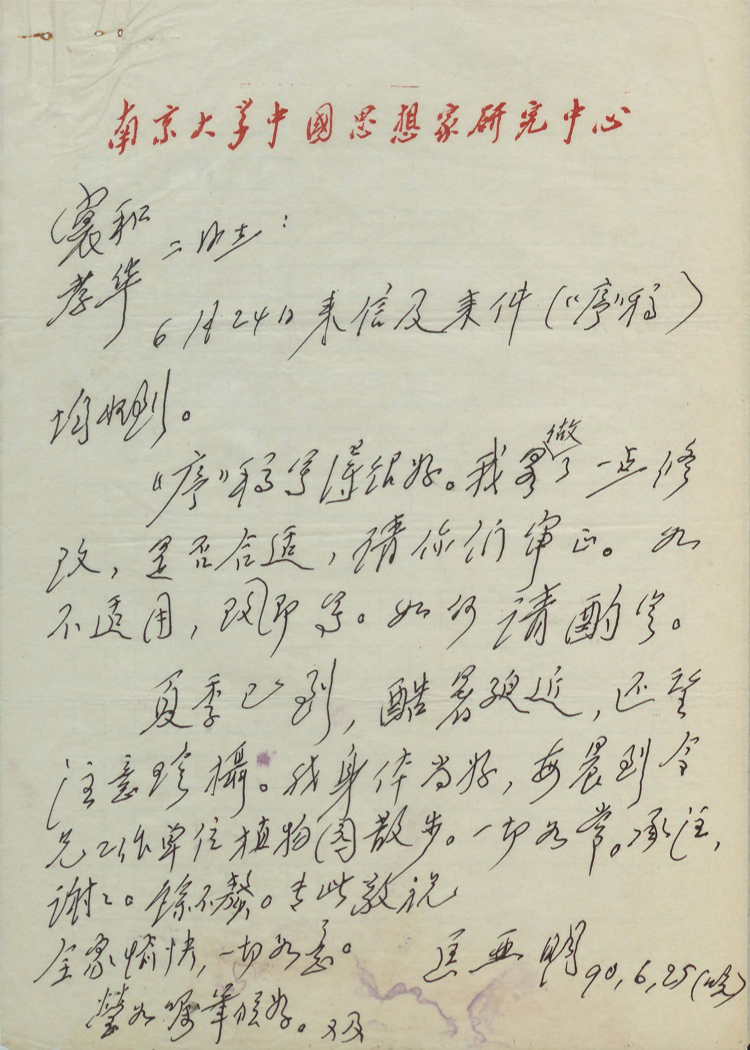 南京大学中國思想家研究中心
寰和
孝华 二同志：
6月24日来信及来件（“序”稿）
均收到。
“序”稿写得很好。我略做了一点修
改，是否合适，请你们审正。如
不适用，改即写。如何请酌定。
夏季已到，酷暑临近，还望
注意珍摄。我身体尚好，每晨到令
兄工作单位植物园散步。一切如常。承注，
谢々。馀不赘。专此敬祝
全家愉快，一切如意。
匡亚明 90,6,25(晚)
莹如嘱笔候好。又及